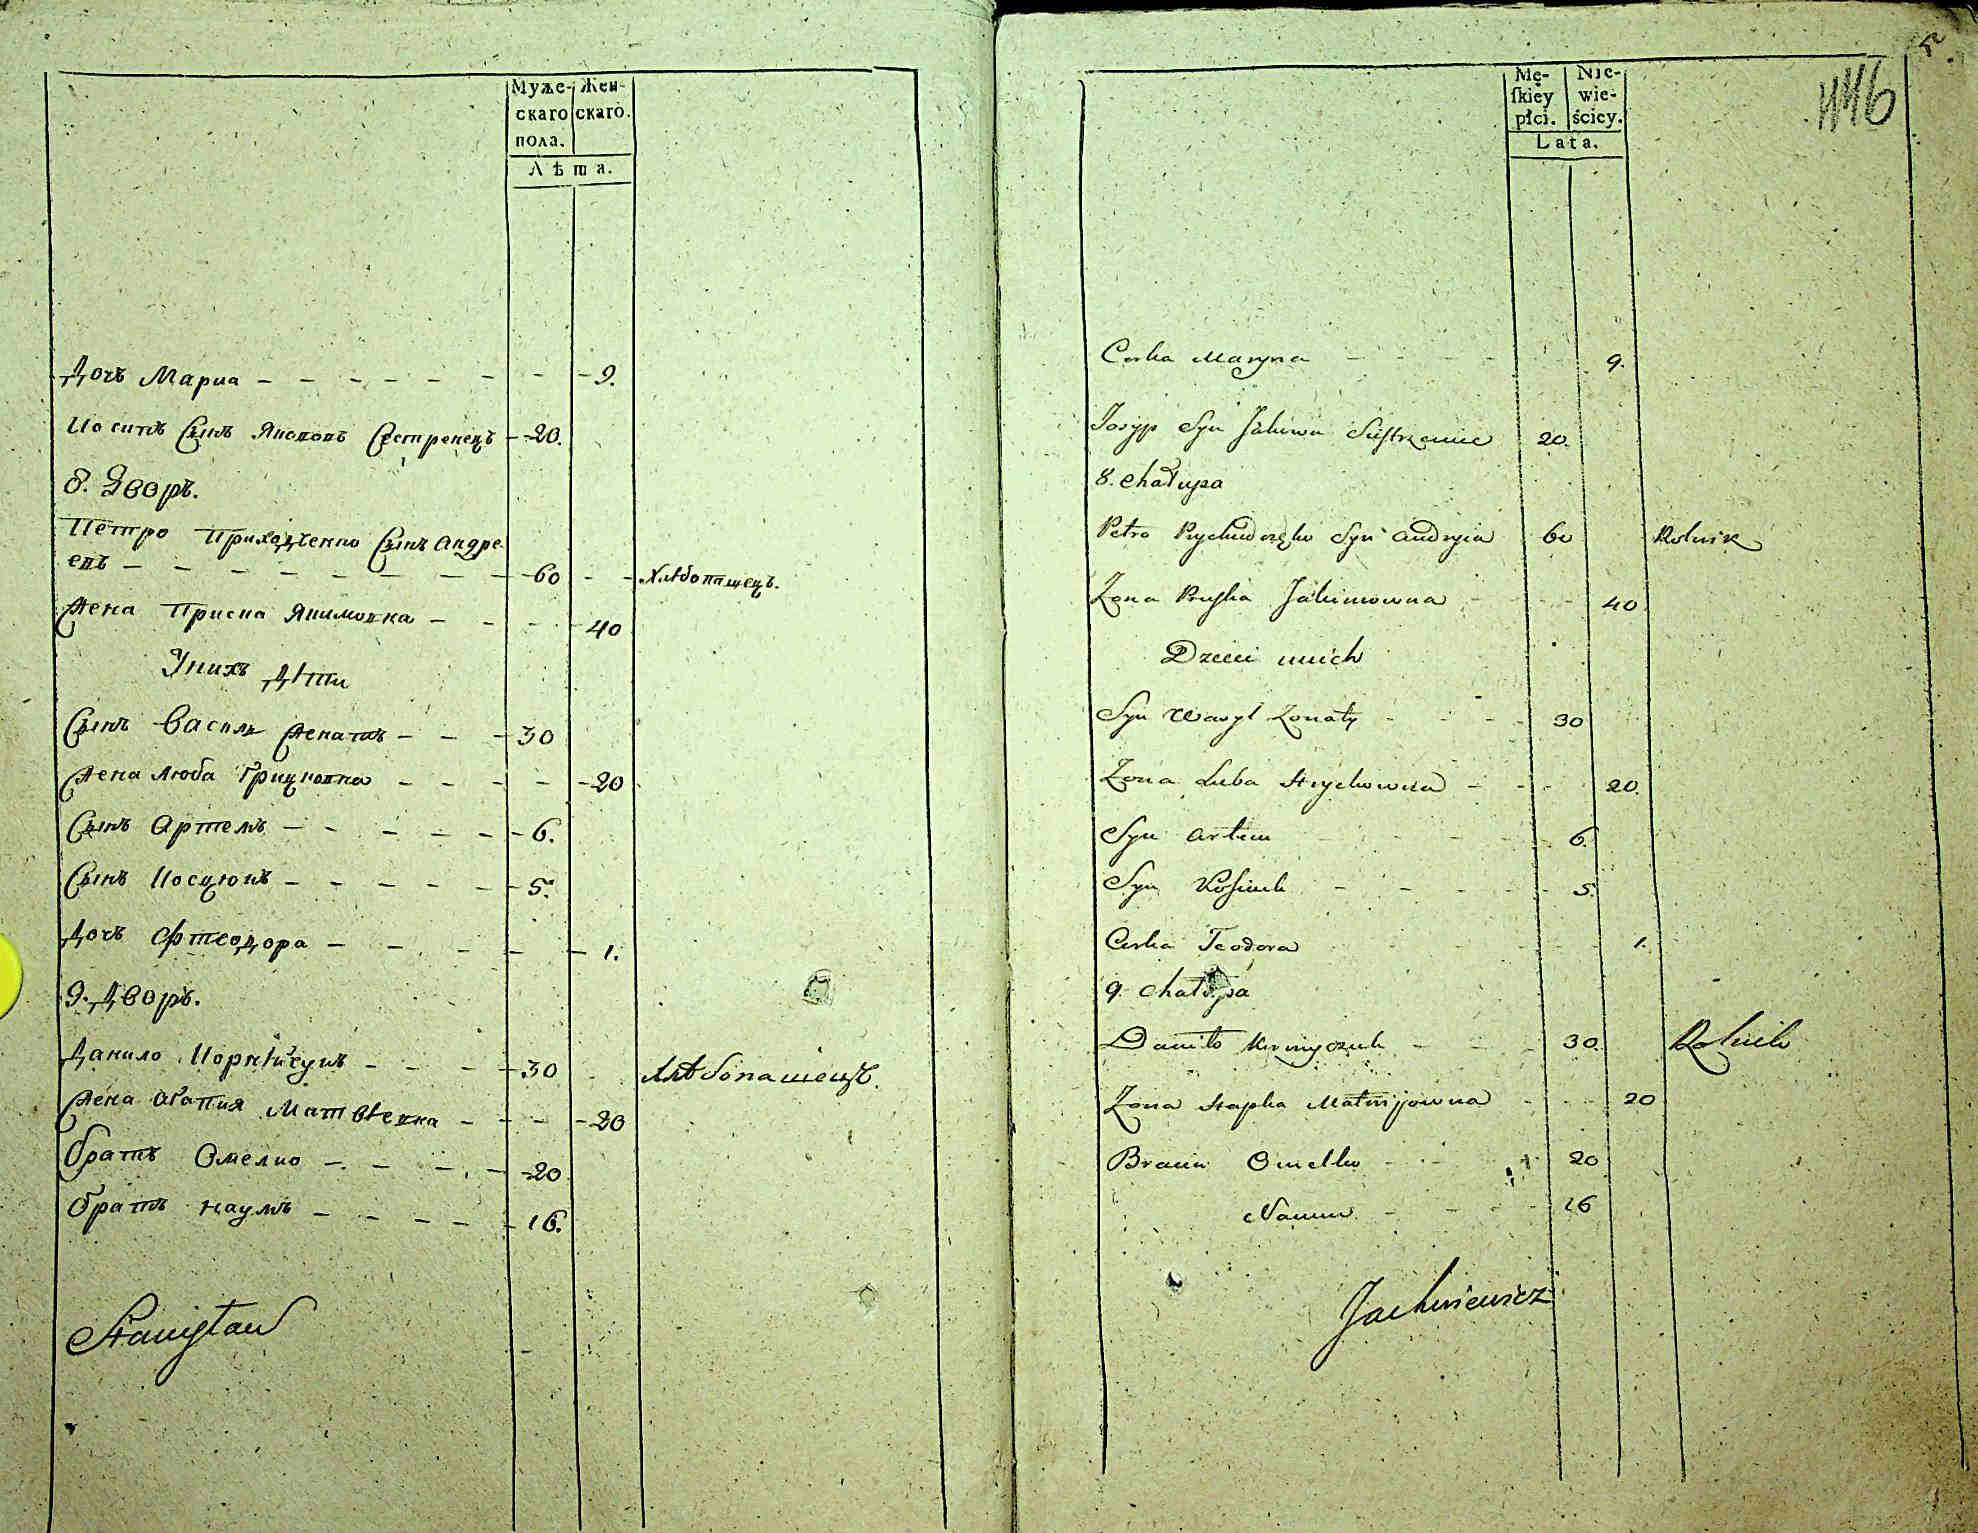 Муже-
скаго
пола.
Жен-
скаго.
Лѣта.
Дочъ Мариа - 9.
Иосипъ Сынъ Якововъ Сестренецъ - 20.
8. Дворъ.
Петро Приходченко Сынъ Андре
евъ - 60 - Хлѣбопашецъ.
Жена Приска Якимовка - 40
У нихъ Дѣти
Сынъ Василь Женатъ - 30
Жена Люба Грицковка - 20
Сынъ Артемъ - 6.
Сынъ - 5.
Дочъ Фтеодора - 1.
9. Дворъ.
Данило - 30 Хлѣбопашецъ.
Жена Агапия Матвѣевка - 20
Братъ Омелко - 20
Братъ Наумъ - 16.
Stanisław
Mę-
skiey
płci.
Nie-
wie-
ściey.
Lata.
5
446
Corka Maryna - 9.
Josyp Syn Jakowa Siestrzeniec 20.
8. Chałupa
Petro Syn Andryia 60 Rolnik
Zona Pryska Jakimowna - 40
Dzieci u nich
Syn Wasyl Zonaty - 30
Zona Luba Hrychowna - 20.
Syn Artem - 6.
Syn - 5.
Corka Teodora 1.
9. Chałupa
Daniło - 30. Rolnik
Zona Hapka Matwijowna - 20
Bracia Omelko - 20
Naum - 16
Jachniewicz